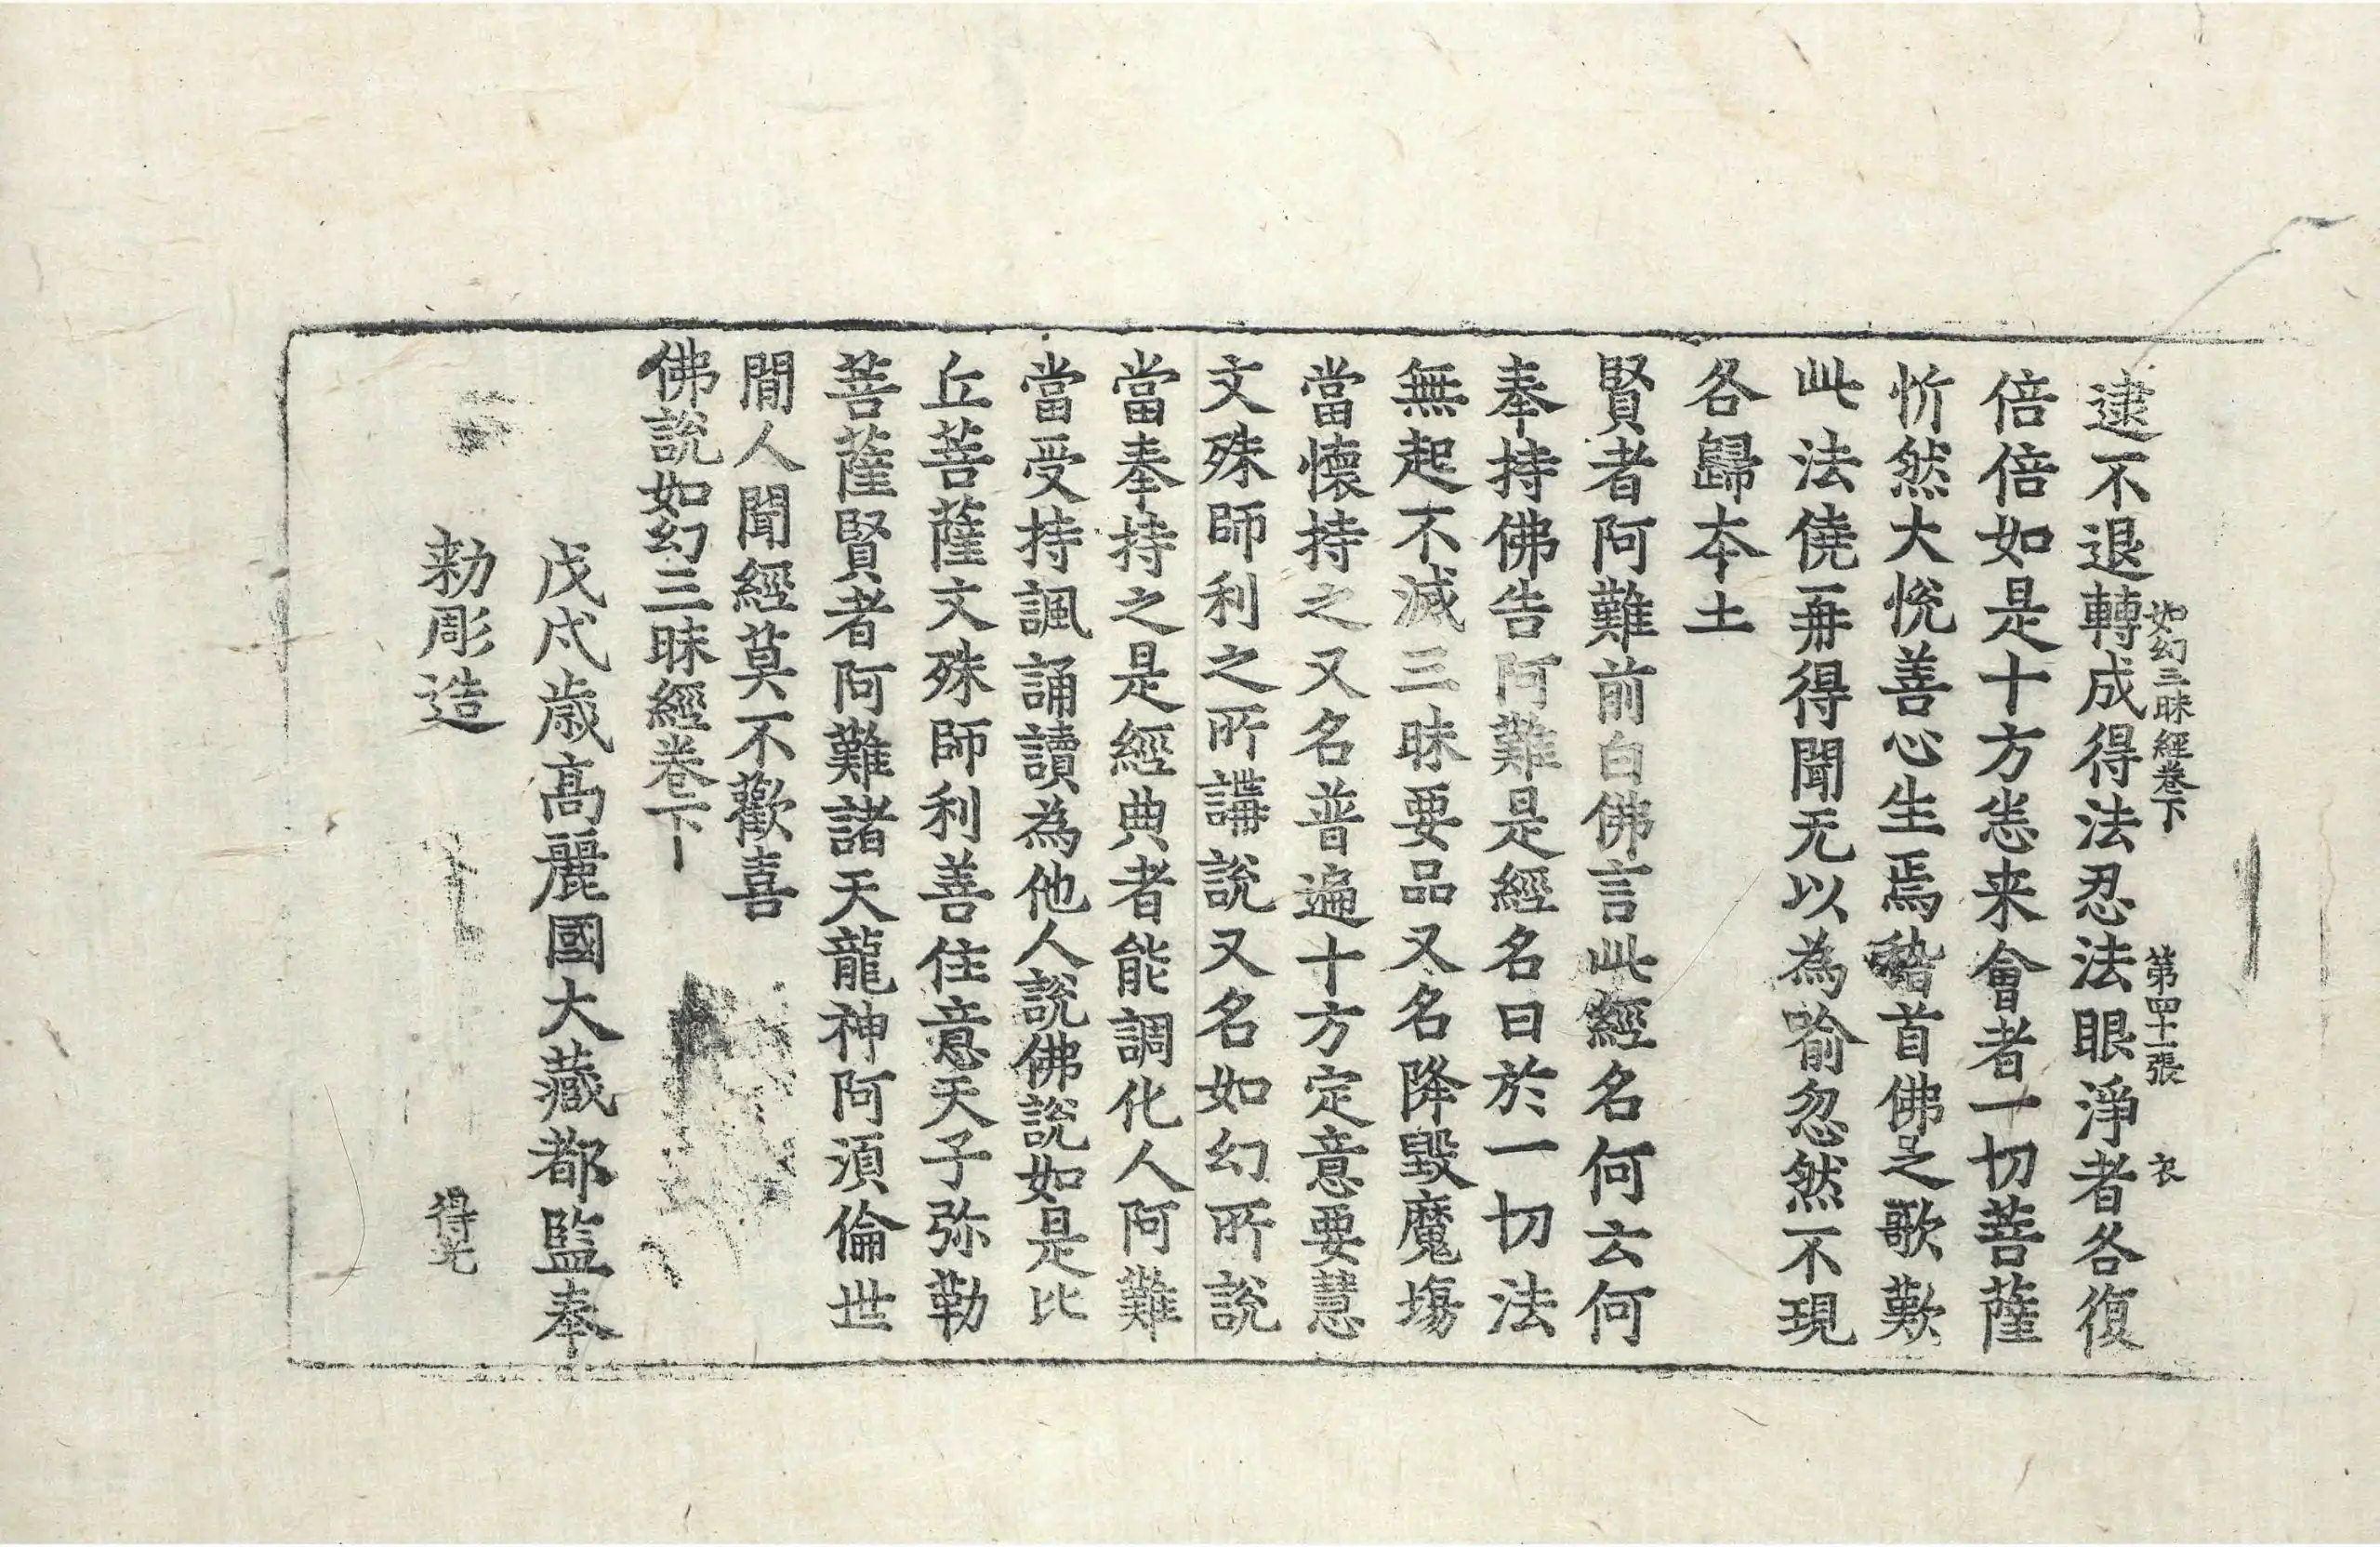 如幻三昧經卷下　第四十一張　衣
逮不退轉成得法忍法眼淨者各復
倍倍如是十方恙来會者一切菩薩
忻然大悅善心生焉稽首佛足之歌歎
此法僥再得聞无以為喻忽然不現
各歸本土
賢者阿難前白佛言此經名何云何
奉持佛告阿難是經名曰於一切法
無起不滅三昧要品又名降毀魔場
當懷持之又名普遍十方定意要慧
文殊師利之所講說又名如幻所說
當奉持之是經典者能調化人阿難
當受持諷誦讀為他人說佛說如是比
丘菩薩文殊師利善住意天子弥勒
菩薩賢者阿難諸天龍神阿須倫世
間人聞經莫不歡喜
佛說如幻三昧經卷下
戊戌歲高麗國大藏都監奉
勑彫造　得光